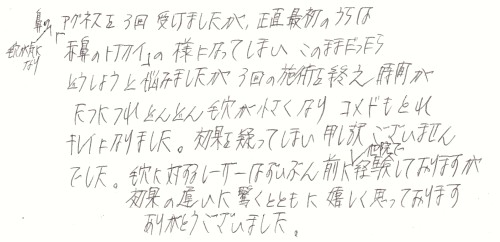 鼻の
アグネスを3回受けましたが、正直最初のうちは
毛穴がなくなり
「鼻のトナカイ」の様になってしまい このままだったら
どうしようと悩みましたが3回の施術を終え 時間が
たつにつれどんどん毛穴が小さくなり コメドもとれ
キレイになりました。効果を疑ってしまい 申し訳ございません
でした。毛穴に対するレーザーはずいぶん前に経験しておりますが
他院で
効果の違いに驚くとともに嬉しく思っております
ありがとうございました。